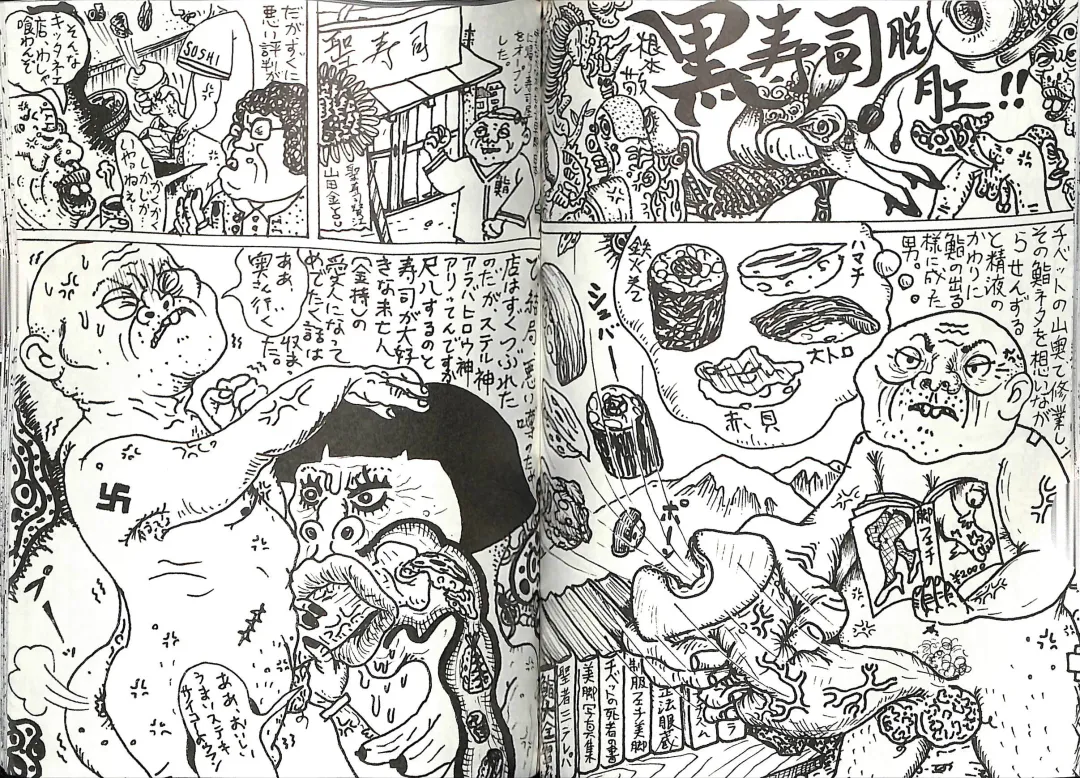 黒寿司 脱肛!!
根本敬
チベットの山奥で修業し
その鮨ネタを想いなが
らせんずる
と精液の
かわりに
鮨の出る
様に成った
男。
ハマチ
鉄火巻
大トロ
赤貝
シュバー
ポーン
脚フェチ
¥2000
制服女子美脚
チベットの死者の書
美脚写真集
聖者ミラレパ
をオープン
した。
寿司
鮨
だがすぐに
悪い評判が
SUSHI
そんな
キッタネエ
店、わしゃ
喰わんぞ
と、結局、悪い噂のため
店はすぐつぶれた
のだが、ステル神
アラバヒロウ神
アリッてんです。
尺八するのと
寿司が大好
きな未亡人
(金持)の
愛人になって
めでたく話は
収まった。
ああ、
奥さん行く
ああ、おいしい、
うまいステキ
サイコーよっ!